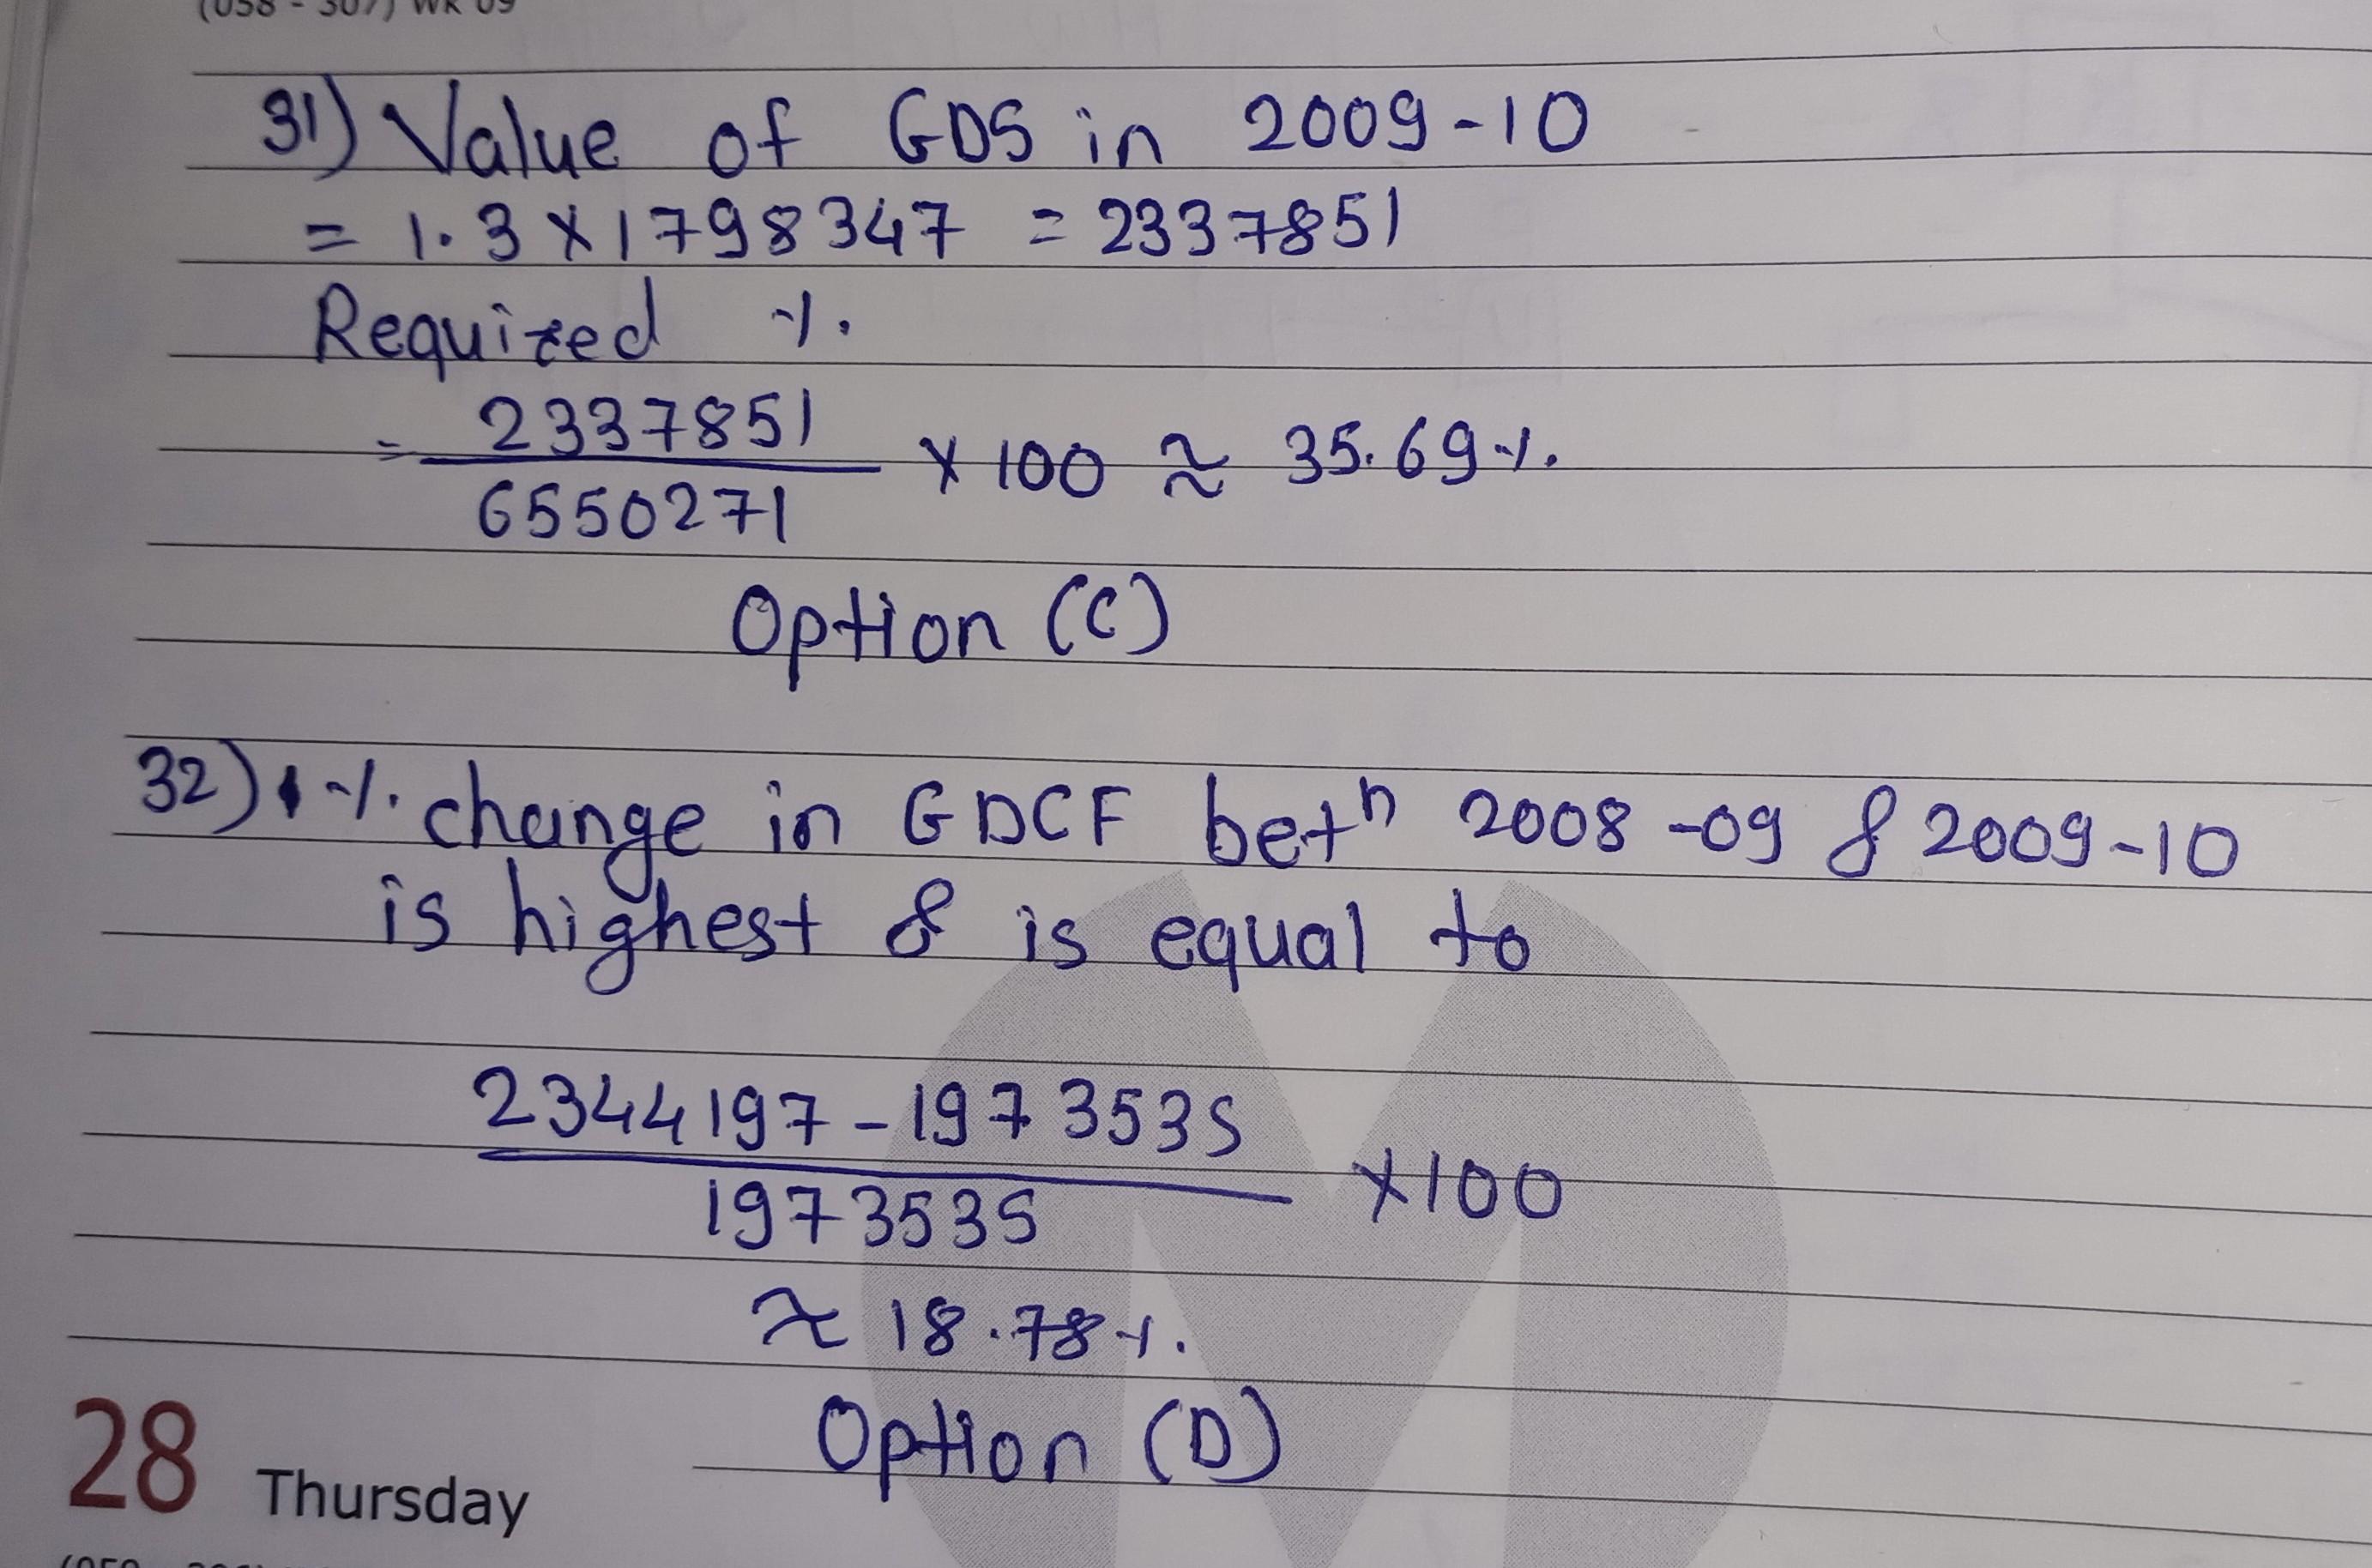 (058 - 307) WK 09
31) Value of GDS in 2009-10
= 1.3 X 1798347 = 2337851
Required %.
= 2337851 / 6550271 X 100 ≈ 35.69%.
Option (C)
32) % change in GDCF betn 2008-09 & 2009-10
is highest & is equal to
2344197 - 1973535
1973535 X100
≈ 18.78%.
Option (D)
28 Thursday